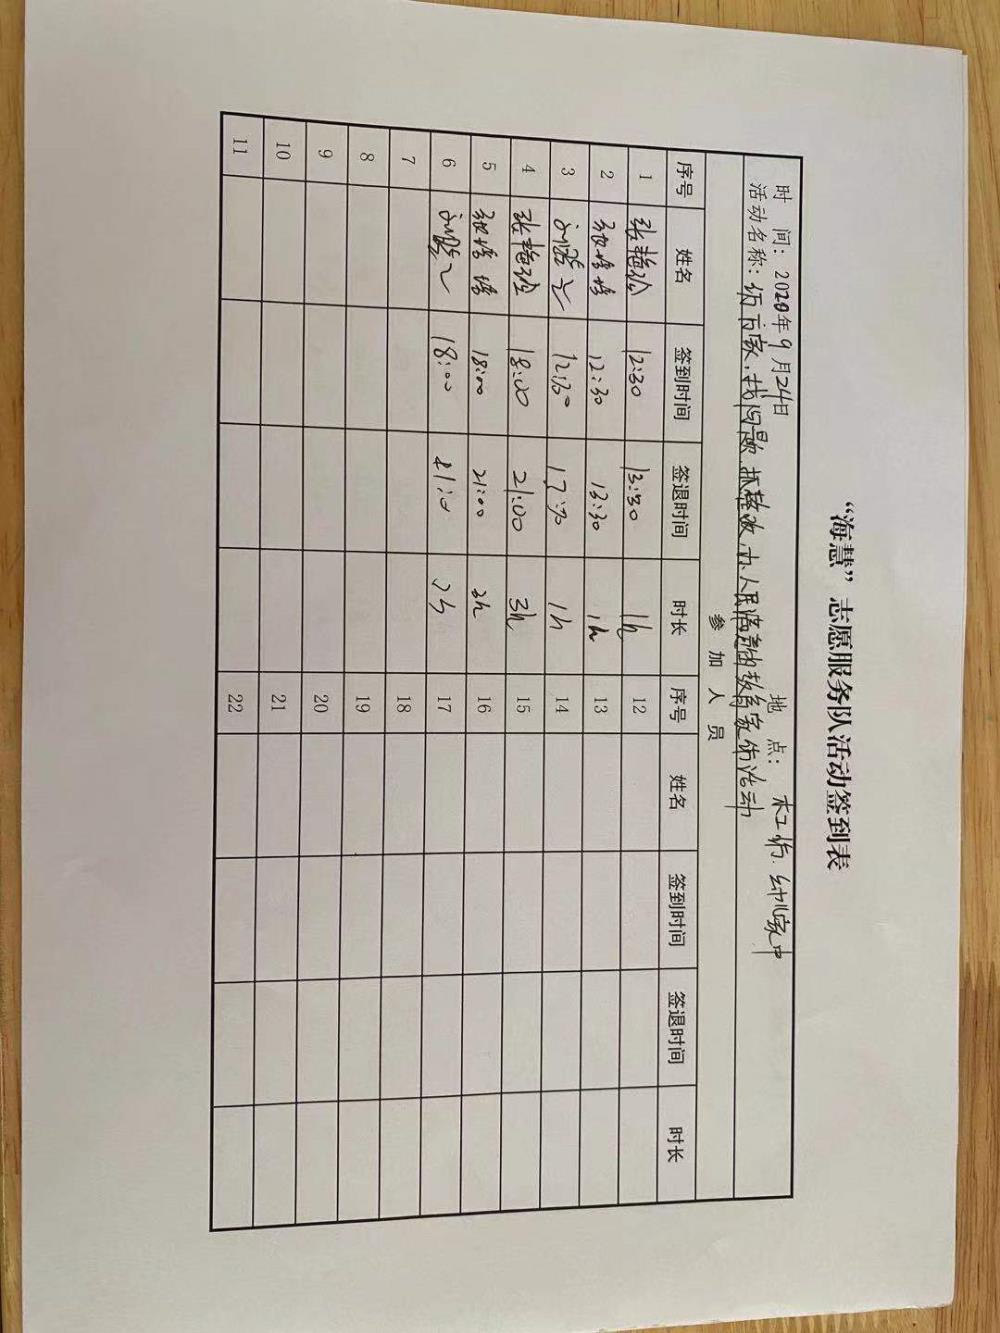 “海慧”志愿服务队活动签到表
时 间：2020年9月24日 地 点：木工坊、幼儿家中
活动名称：访百家、找问题、抓整改、办人民满意的教育家访活动
参 加 人 员
序号 姓名 签到时间 签退时间 时长 序号 姓名 签到时间 签退时间 时长
1 张艳 12:30 13:30 1h 12
2 张培培 12:30 13:30 1h 13
3 12:30 1h 14
4 张艳 18:00 21:00 3h 15
5 张培培 18:00 21:00 3h 16
6 18:00 17
7 18
8 19
9 20
10 21
11 22